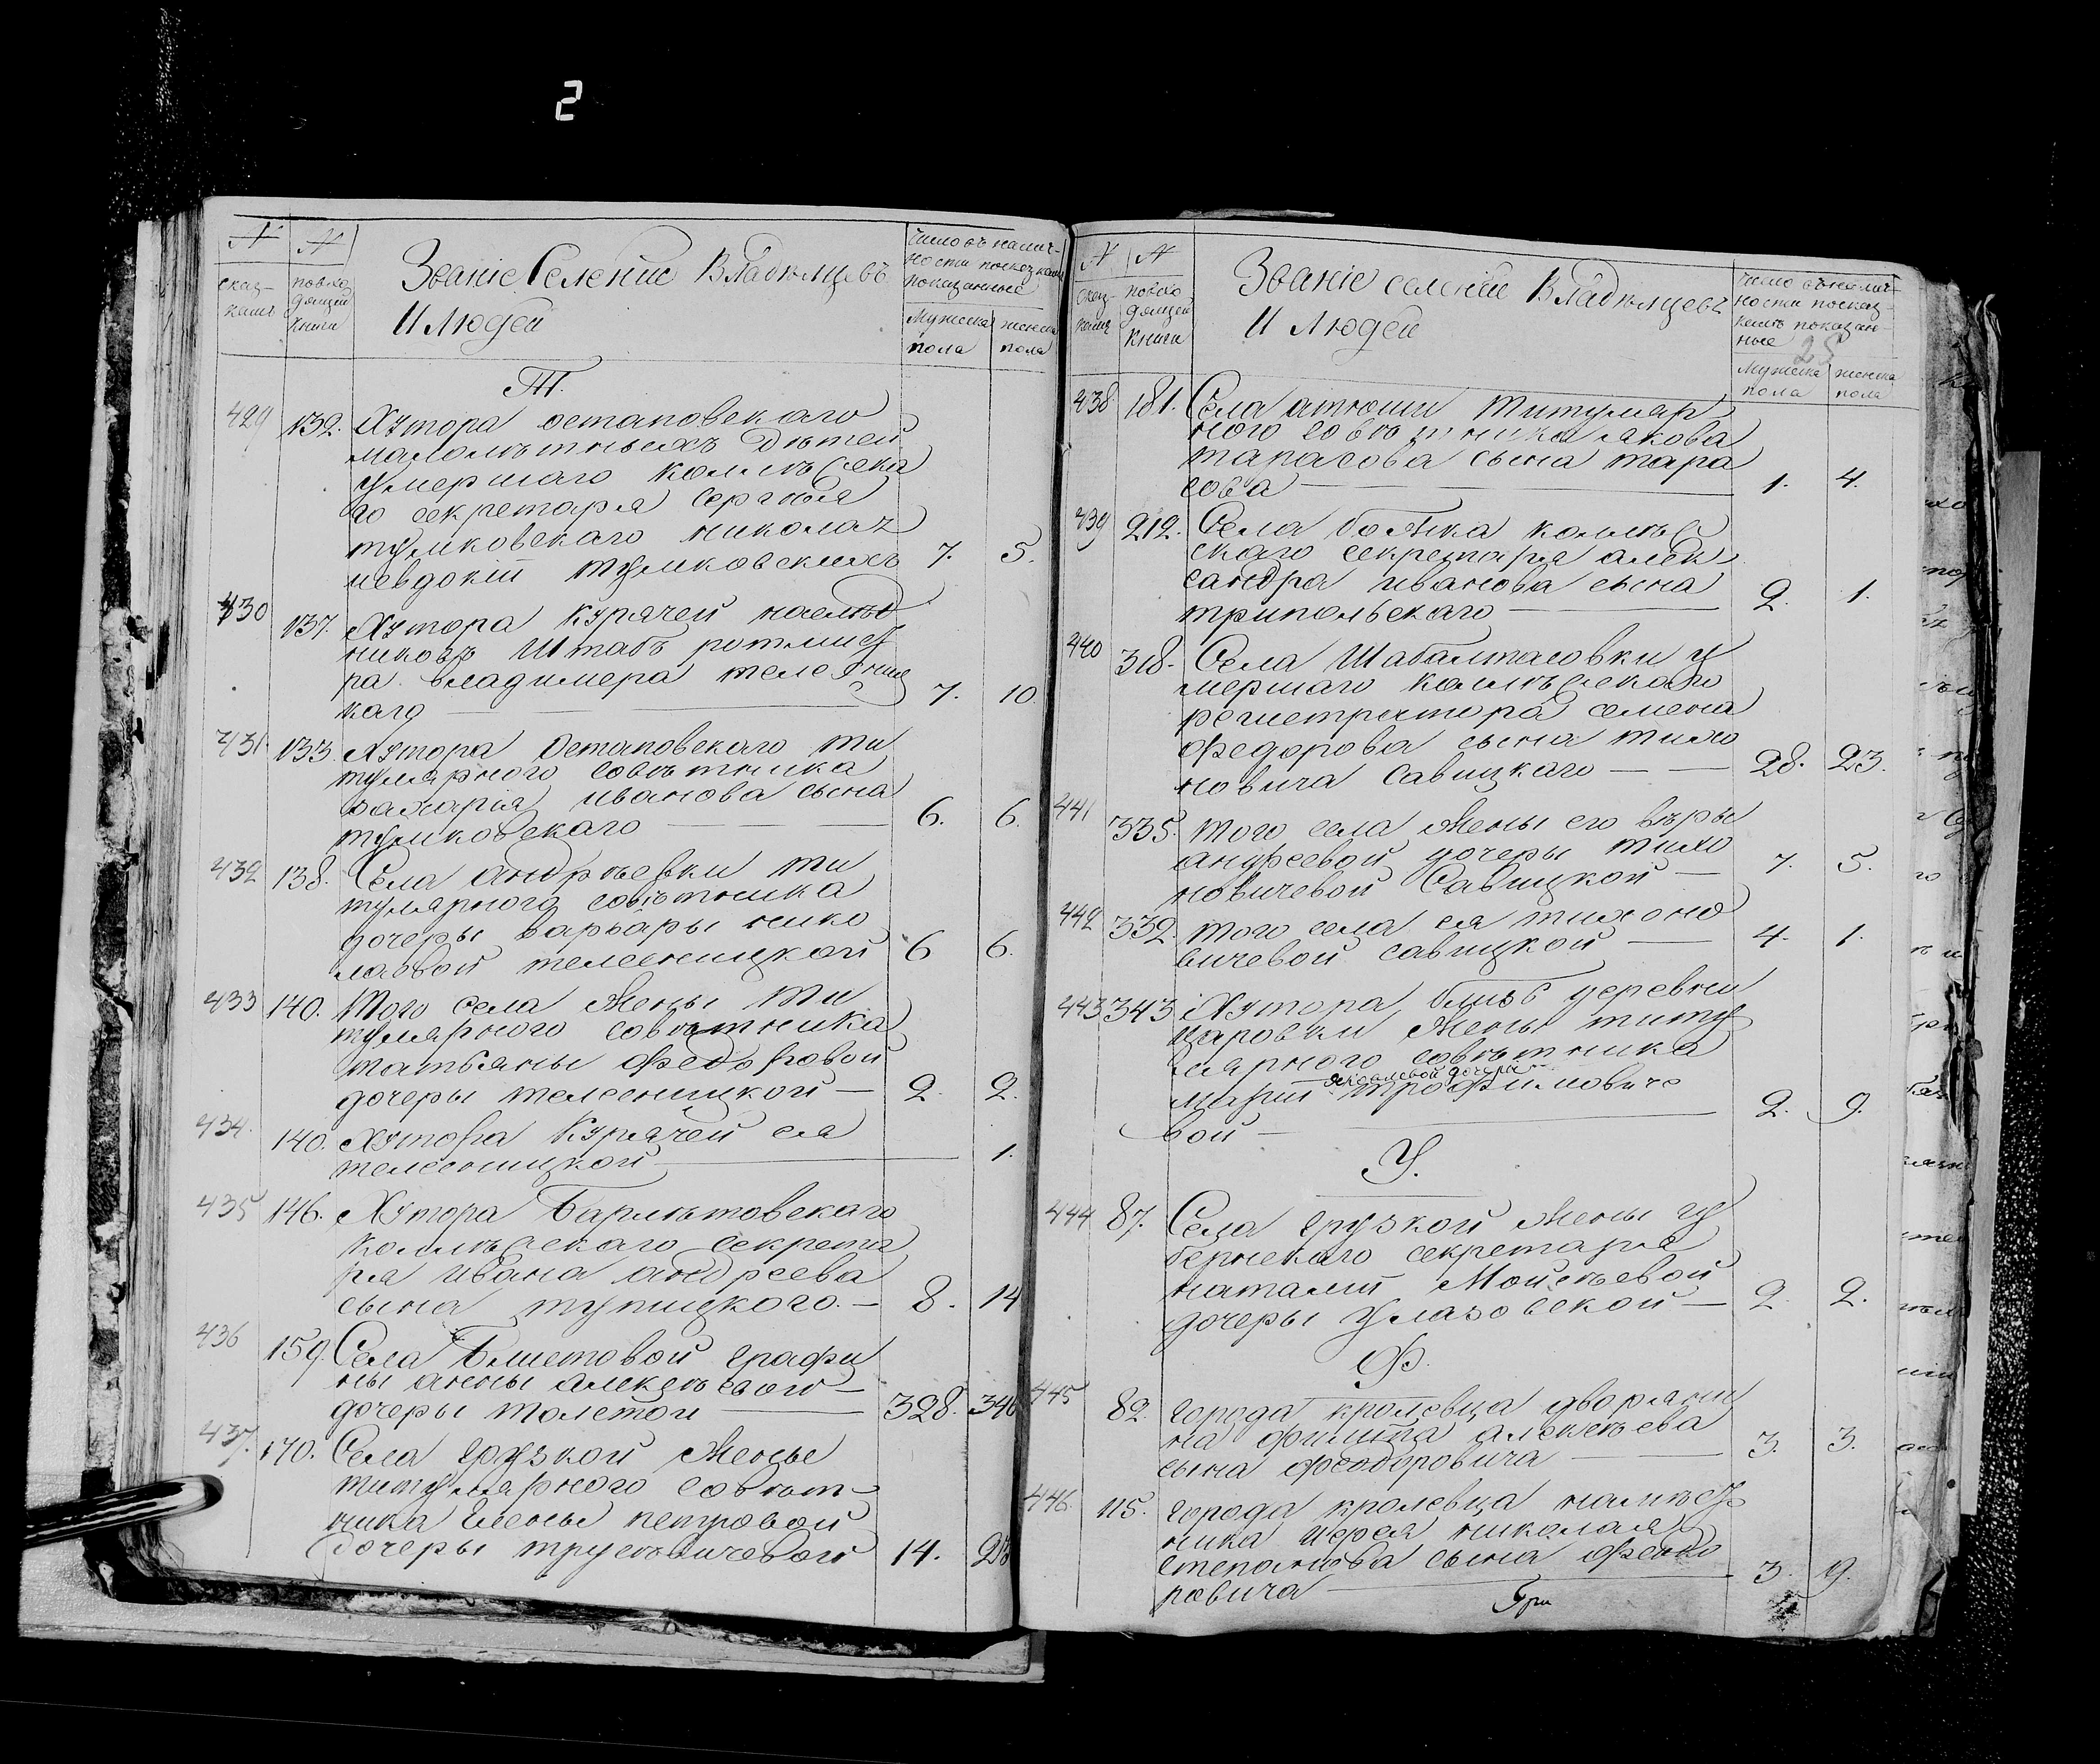 2
№ № Званіе Селеніи Владѣльцевъ Число въ налич-
сказ- повхо ности посказкамъ
камъ дящей И Людей показанные
книги Мужеска женска
пола пола
Т.
429 132. Хутора остаповскаго
малолѣтныхъ дѣтей
умершаго коллѣжска
го секретаря Сергѣя
тулковского николая
иевдокіи тулковскихъ 7. 5.
430 137. Хутора Курячей наслѣд
никовъ Штабъ ротмист
ра владимера телесниц
каго 7. 10.
431. 133. Хутора Остаповскаго ти
тулярного совѣтника
захарія иванова сына
тулковскаго 6. 6.
432 138. Села андрѣевки ти
тулярного совѣтника
дочеры варвары нико
лаевой телесницкой 6 6.
433 140. Того села жены ти
тулярного совѣтника
татьяны федоровой
дочеры телесницкой 2. 2.
434. 140. Хутора Курячей ея
телесницкой 1.
435 146. Хутора Бармѣтовскаго
коллѣжскаго секрета
ря ивана андреева
сына тупицкого. 8. 14
436 159. Села Блистовой графи
ны анны алексѣевой
дочеры толстой 328. 346
437. 170. Села грузкой жены
титулярного совѣт-
ника Елены петровой
дочеры трусѣвичевой 14. 23
№ № Званіе селеніи Владѣльцевъ Число въ налич-
сказ- повхо ности посказ-
камъ дящей И Людей камъ показан-
книги ные 25
Мужеска женска
пола пола
438 181. Села атюши титуляр
ного совѣтника якова
тарасова сына тара
сова 1. 4.
439 212. Села ботка коллѣж
скаго секретаря алек
сандра иванова сына
трипольскаго 2. 1.
440 318. Села Шабалтасовки у
мершаго коллѣжскаго
регистратора семена
федорова сына тихо
новича савицкаго 28. 23.
441 335. того села жены его вѣры
андреевой дочеры тихо
новичевой Савицкой 7. 5.
442 332. того села ея тихоно
вичевой савицкой 4. 1.
443 343 Хутора близъ деревни
царовки жены титу
лярного совѣтника
яковлевой дочери
маріи трофимовиче
вой 2. 9.
У.
444 87. Села грузкой жены гу
бернскаго секретаря
наталіи Мойсѣевой
дочеры Улазовской 2. 2.
Ф.
445 82. города кролевца дворяни
на филипа алексѣева
сына феодоровича 3. 3.
446. 115. города кролевца намѣст
ника иерея николая
степанова сына федо
ровича 3. 9.
При